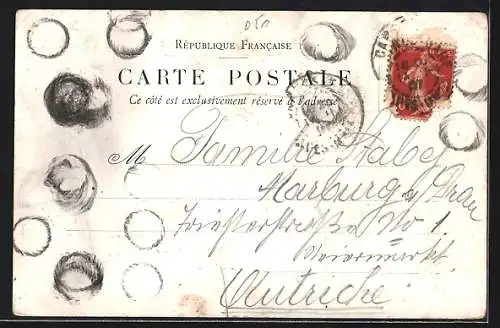 RÉPUBLIQUE FRANÇAISE
CARTE POSTALE
Ce côté est exclusivement réservé à l'adresse
M Familie
Marburg a/ Drau
Triesterstraße No 1.
Steiermarkt
Autriche